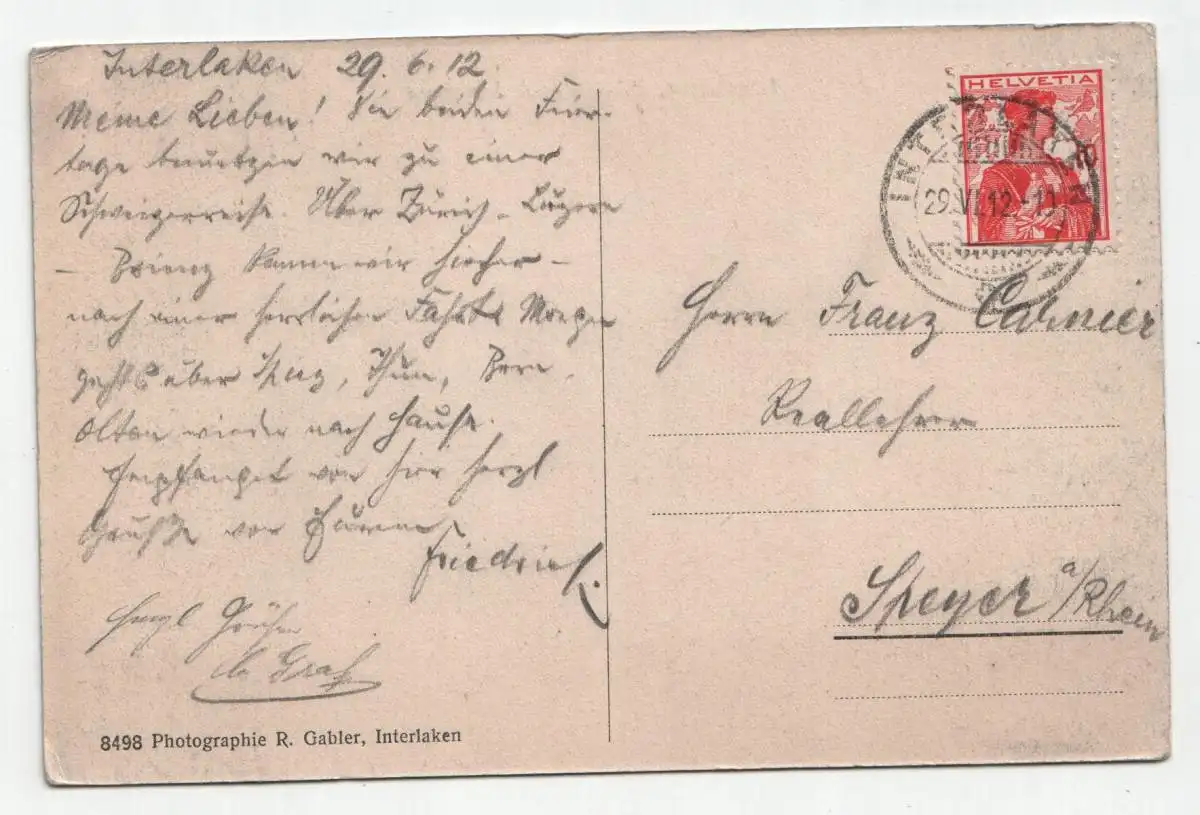 Interlaken 29. 6. 12.
Meine Lieben! Die beiden Feier-
tage benutzen wir zu einer
Schweizerreise. Über Zürich - Luzern
- Brienz kamen wir hierher
nach einer herrlichen Fahrt. Morgen
geht's über Spiez, Thun, Bern,
Olten wieder nach Hause.
Empfanget von hier herzl
Grüße von Eurem
Friedrich.
Herzl Grüße
Graf
8498 Photographie R. Gabler, Interlaken
HELVETIA
INTERLAKEN
29.VI.12.-11
Herrn Franz
Reallehrer
Speyer a/Rhein